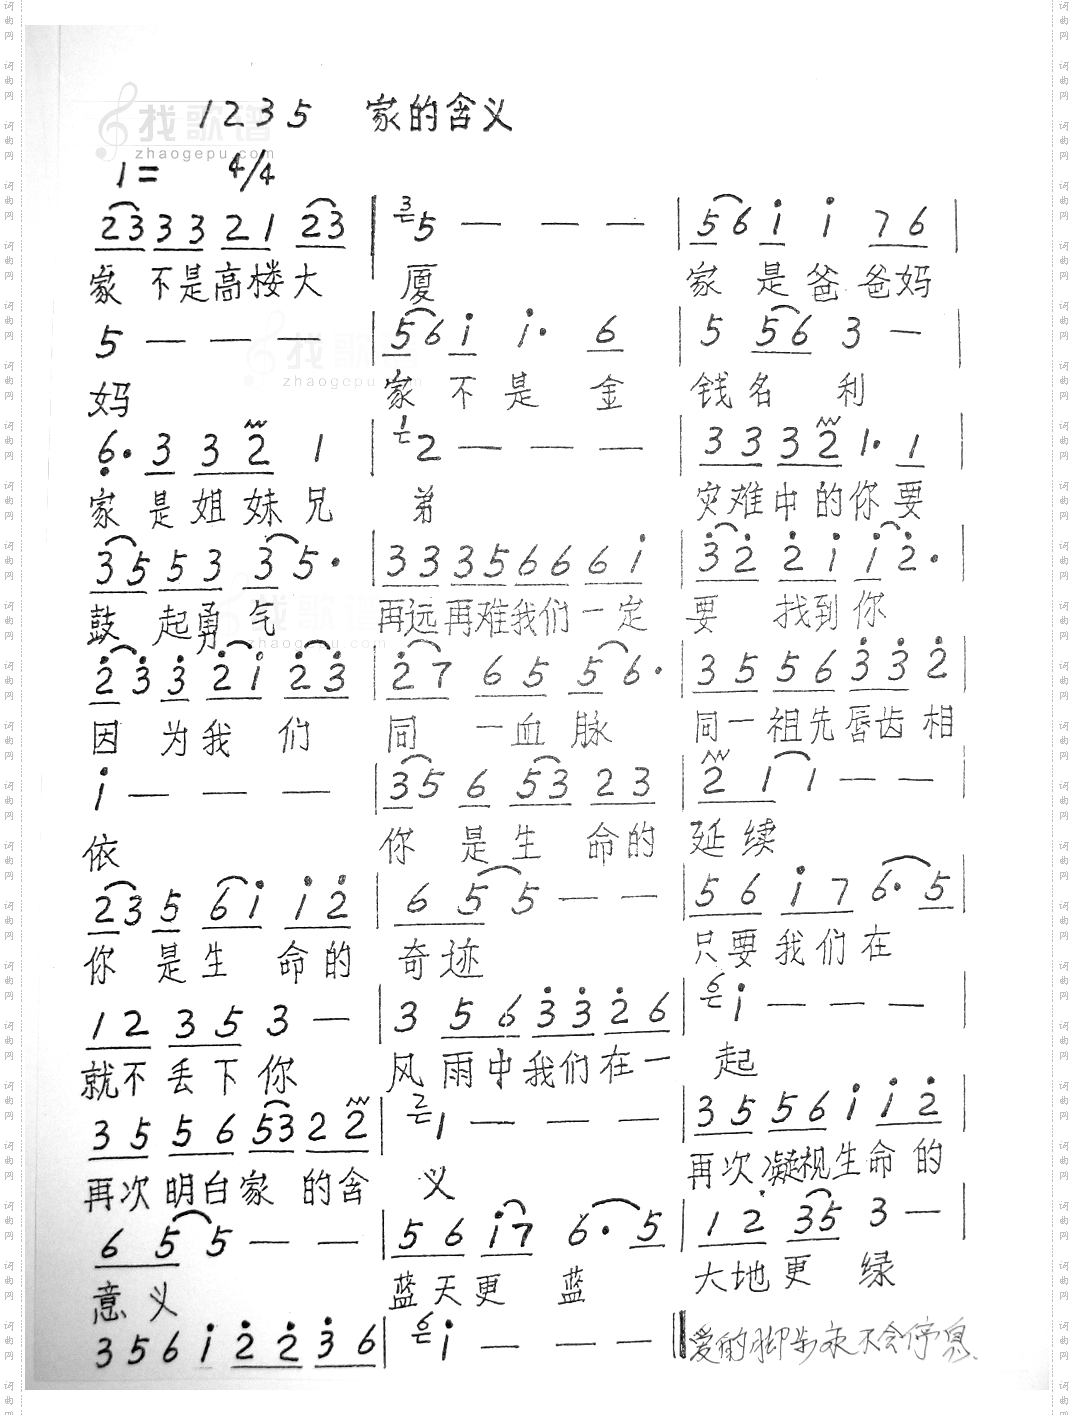 1235 家的含义
1= 4/4
23 33 21 23 | 3 5 — — — | 56 i i 76 |
家 不是高楼大 厦 家 是爸爸妈
5 — — — | 56 i i· 6 | 5 56 3 — |
妈 家 不 是 金 钱名 利
6· 3 3 2 1 | 1 2 — — — | 33 32 1· 1 |
家 是 姐 妹 兄 弟 灾难中的你要
35 53 3 5· | 33 35 66 6i | 32 2i i2· |
鼓 起勇 气 再远再难我们一定 要 找到你
23 3 2i 23 | 27 65 56· | 35 56 33 2 |
因 为我 们 同 一血脉 同一祖先唇齿相
i — — — | 35 6 53 23 | 2 1 1 — — |
依 你 是生 命的 延续
23 5 6i i2 | 6 5 5 — — | 56 i7 6· 5 |
你 是生 命的 奇迹 只要我们在
12 35 3 — | 3 56 33 26 | 6 i — — — |
就不丢下你 风 雨中我们在一 起
35 56 53 22 | 2 1 — — — | 35 56 i i2 |
再次明白家 的含 义 再次凝视生命的
6 5 5 — — | 56 i7 6· 5 | 12 35 3 — |
意义 蓝天更 蓝 大地更 绿
356 i 22 36 | 6 i — — — 爱的脚步永不会停息
找歌谱
zhaogepu.com
找歌谱
zhaogepu.com
找歌谱
zhaogepu.com
词曲网